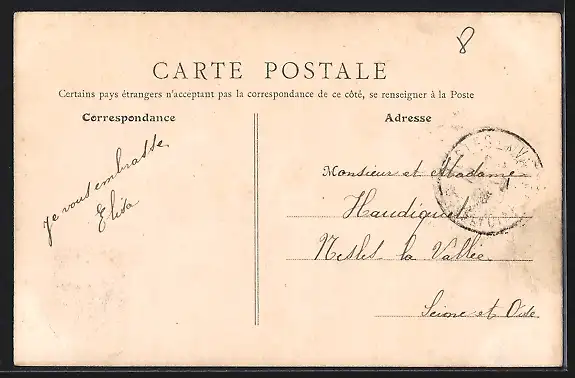 8
CARTE POSTALE
Certains pays étrangers n'acceptant pas la correspondance de ce côté, se renseigner à la Poste
Correspondance
Adresse
je vous embrasse
Elisa
Monsieur et Madame
Haudiquet
Nesles la Vallée
Seine et Oise